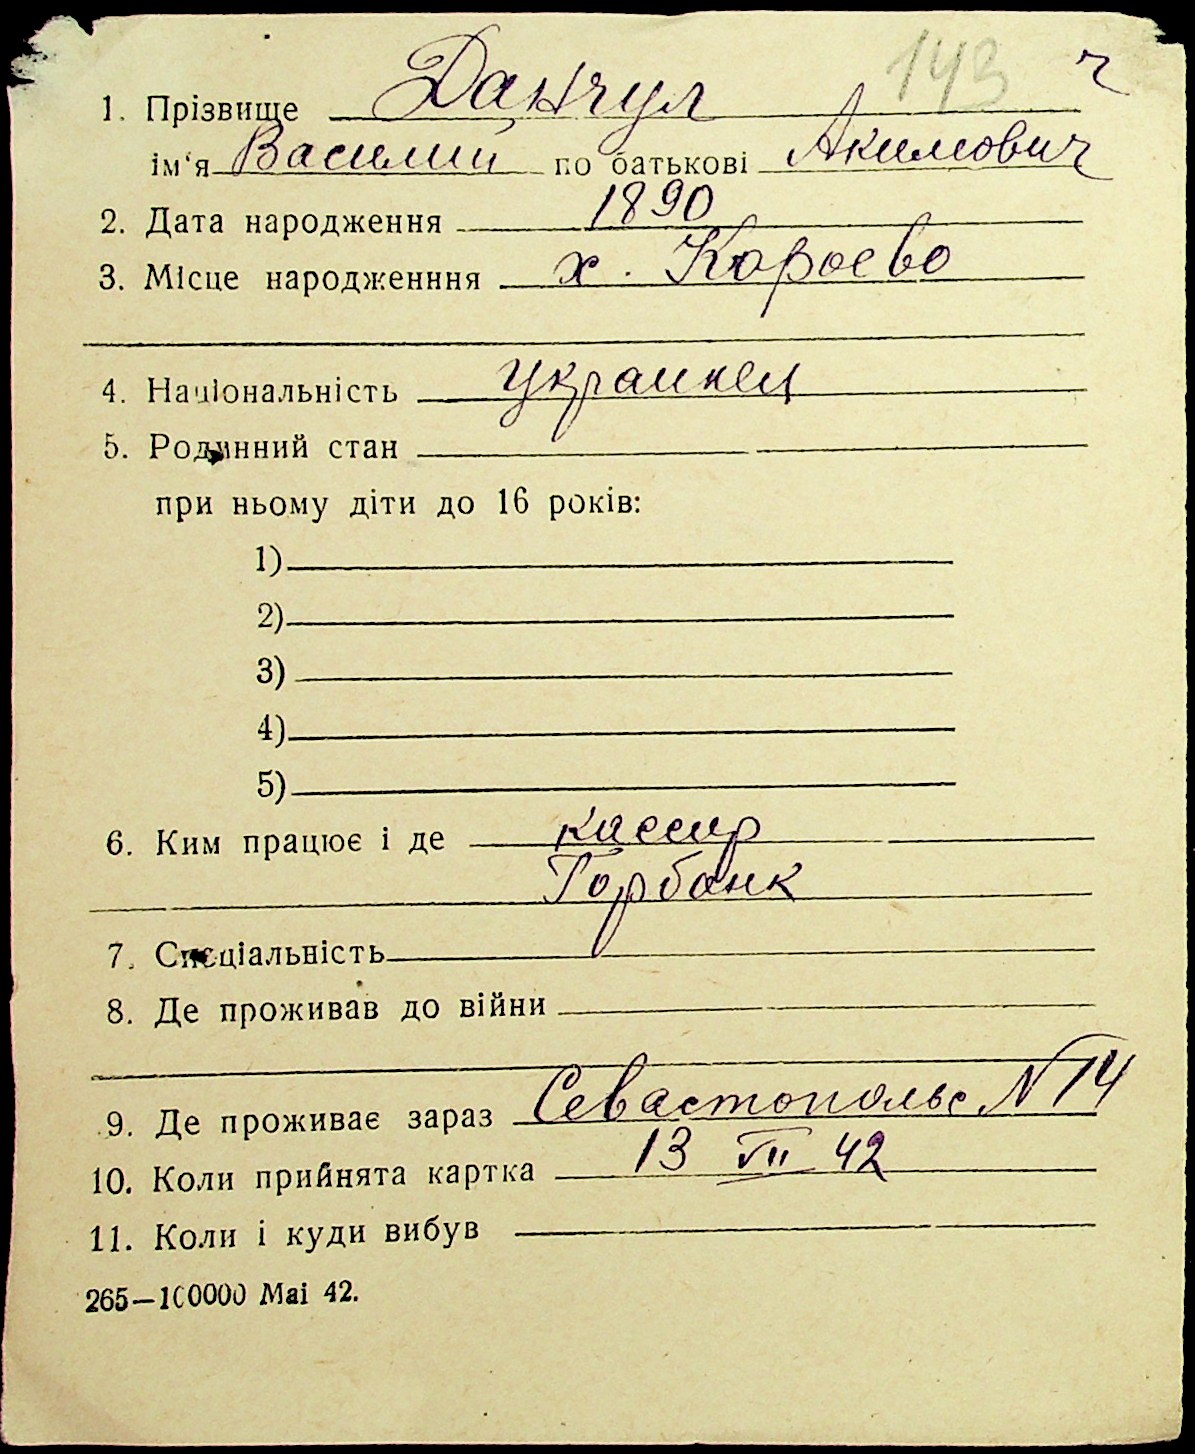 143 ч
1. Прізвище Данчул
ім‘я Василий по батькові Акимович
2. Дата народження 1890
3. Місце народженння х. Кораево
4. Національність украинец
5. Родинний стан
при ньому діти до 16 років:
1)
2)
3)
4)
5)
6. Ким працює і де кассир
Горбанк
7. Спеціальність
8. Де проживав до війни
9. Де проживає зараз Севастопольс N 14
10. Коли прийнята картка 13 VII 42
11. Коли і куди вибув
265—100000 Mai 42.